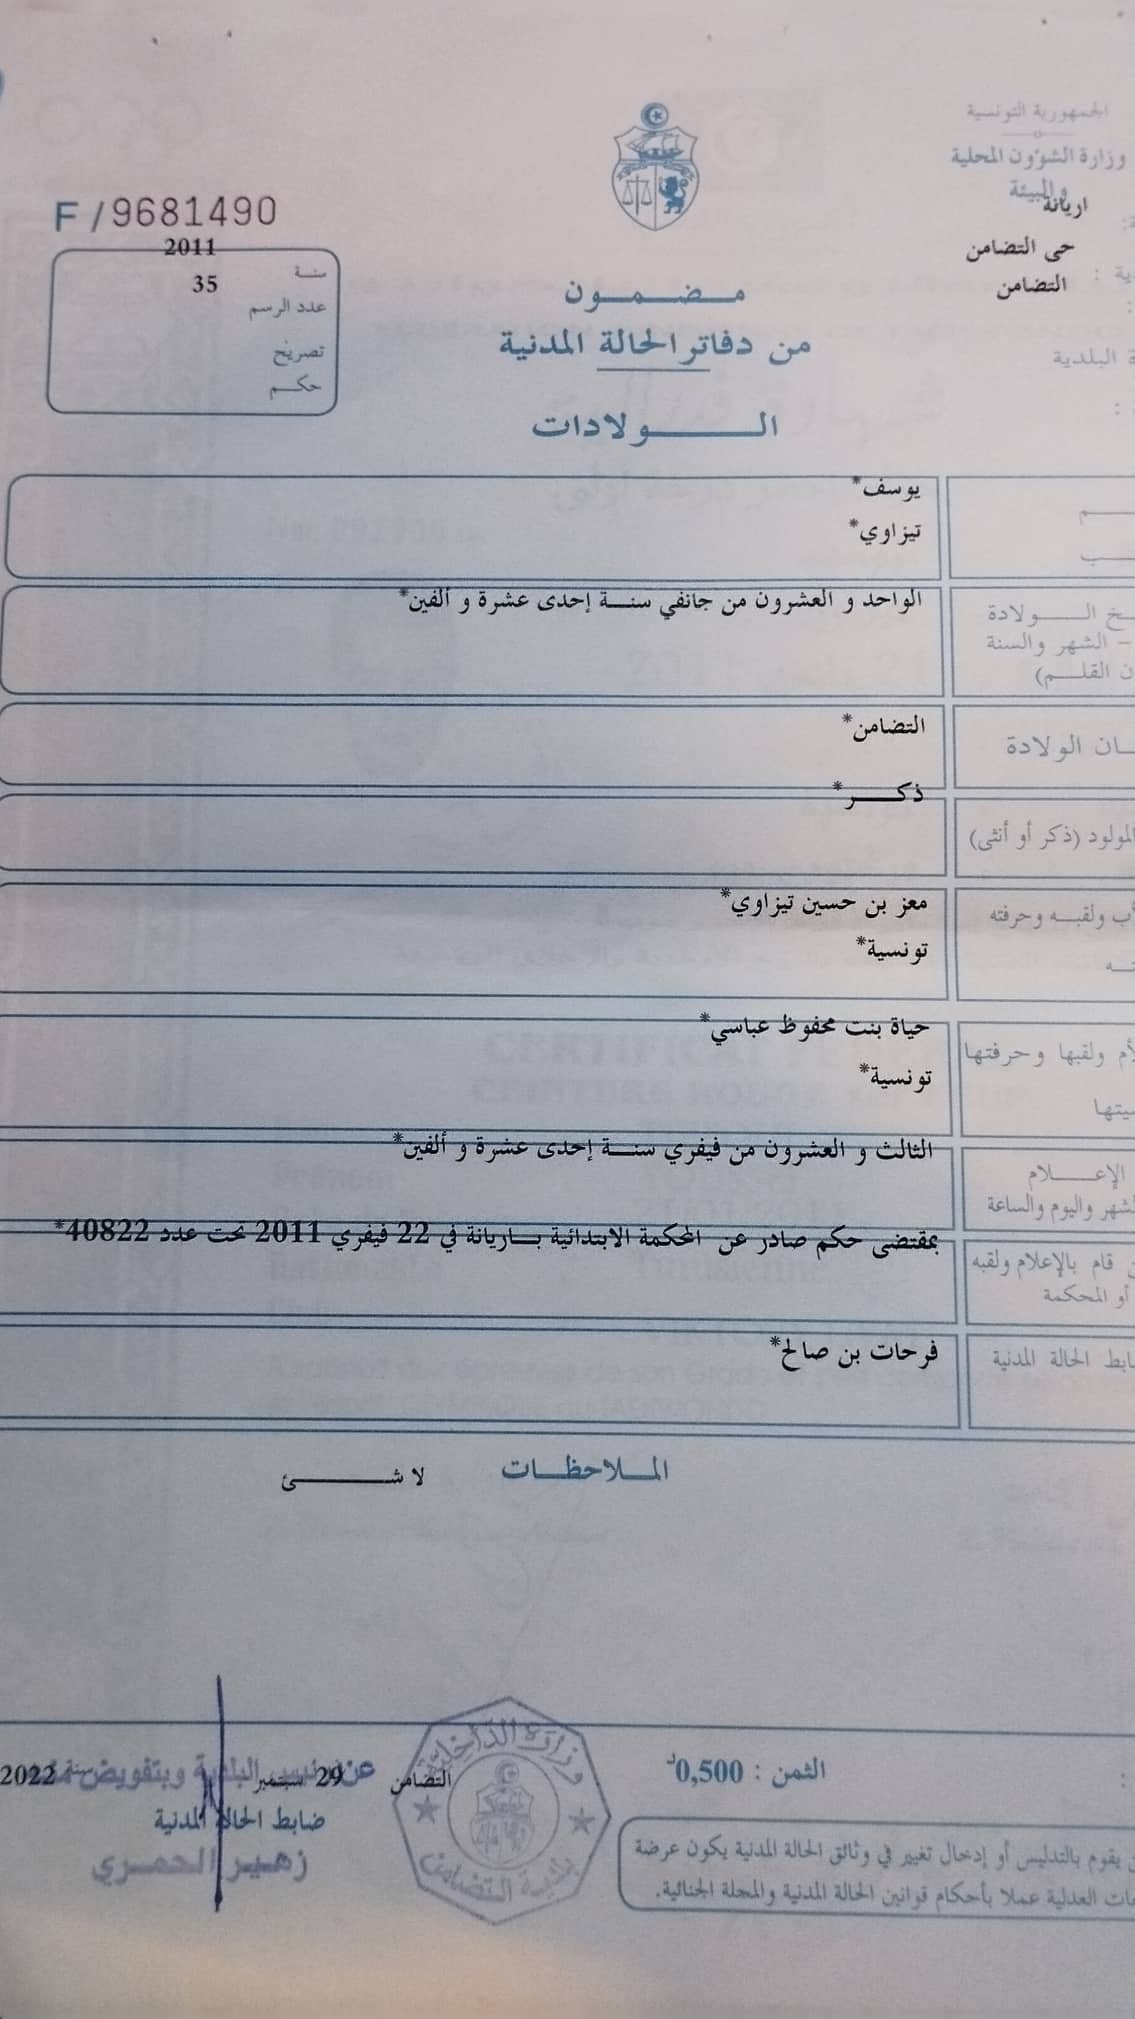 الجمهورية التونسية
وزارة الشؤون المحلية
والبيئة
اريانة
حى التضامن
التضامن
ة البلدية
F / 9681490
سنة 2011
عدد الرسم 35
تصريح
حكم
مضمون
من دفاتر الحالة المدنية
الولادات
يوسف*
تيزاوي*
خ الولادة
– الشهر والسنة
ن القلم)
الواحد و العشرون من جانفي سنة إحدى عشرة و ألفين*
ان الولادة
التضامن*
المولود (ذكر أو أنثى)
ذكر*
أب ولقبه وحرفته
معز بن حسين تيزاوي*
تونسية*
أم ولقبها وحرفتها
حياة بنت محفوظ عباسي*
تونسية*
الإعلام
لشهر واليوم والساعة
الثالث و العشرون من فيفري سنة إحدى عشرة و ألفين*
ن قام بالإعلام ولقبه
أو المحكمة
بمقتضى حكم صادر عن المحكمة الابتدائية باريانة في 22 فيفري 2011 تحت عدد 40822*
ابط الحالة المدنية
فرحات بن صالح*
الملاحظات
لا شئ
الثمن : 0,500د
التضامن 29 سبتمبر سنة 2022
عن رئيس البلدية وبتفويض منه
ضابط الحالة المدنية
زهير الحمري
وزارة الداخلية
بلدية التضامن
ن يقوم بالتدليس أو إدخال تغيير في وثائق الحالة المدنية يكون عرضة
بات العدلية عملا بأحكام قوانين الحالة المدنية والمجلة الجنائية.